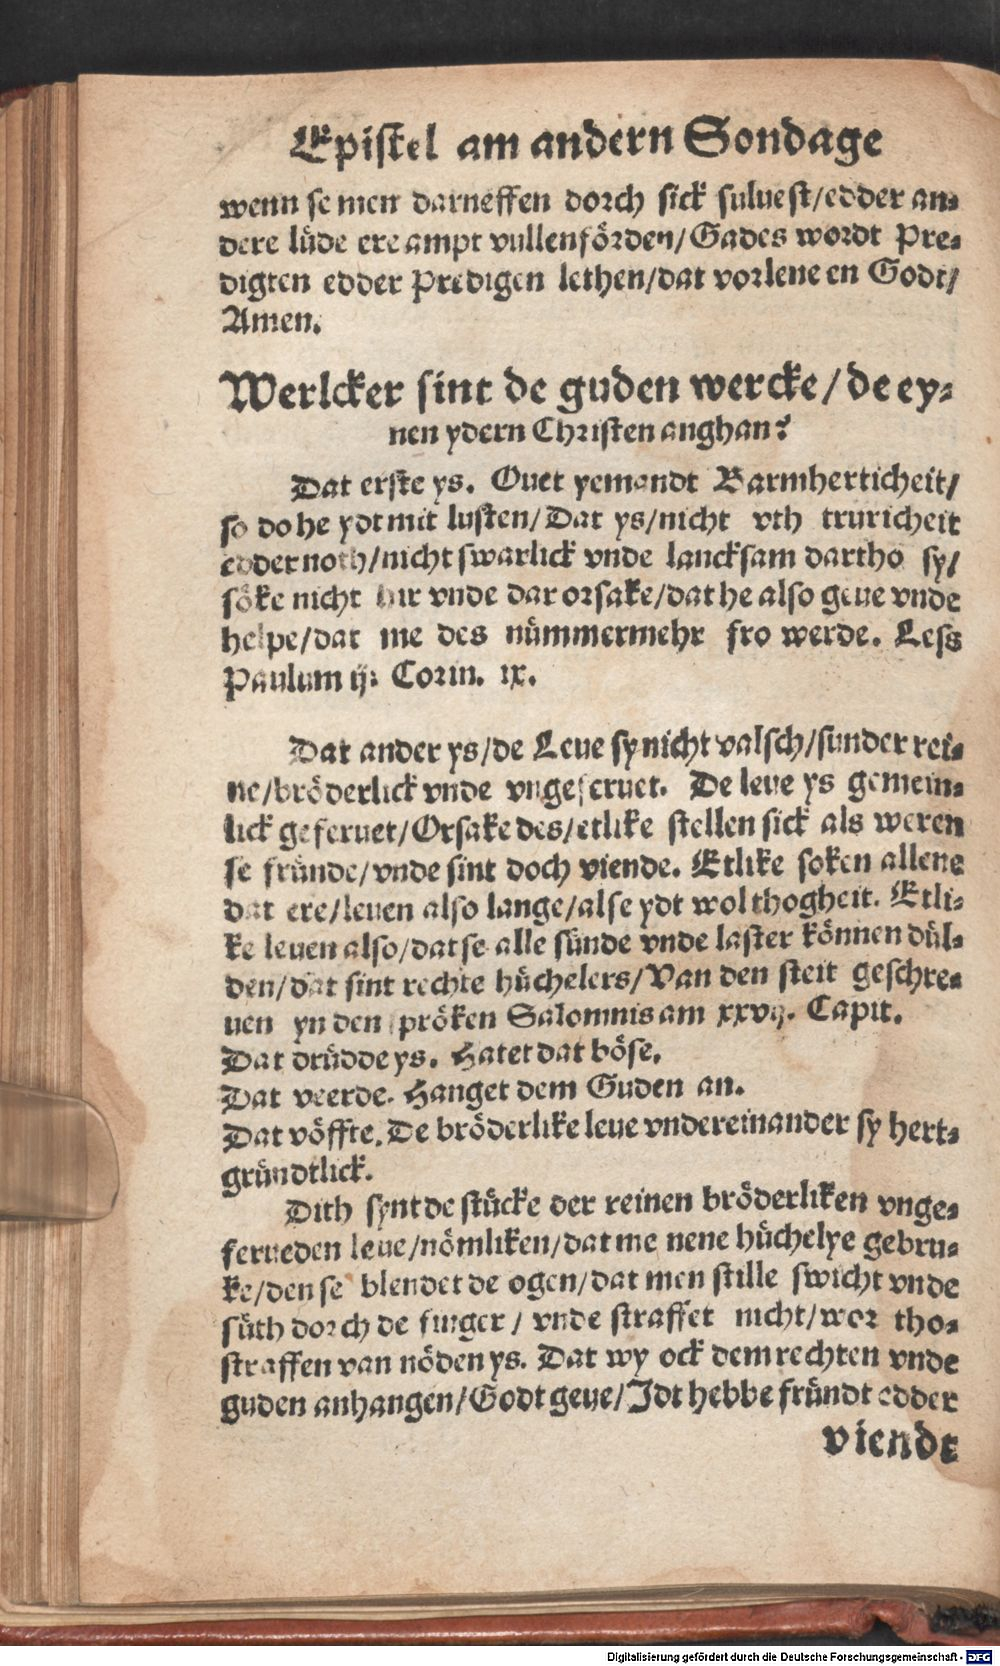 Epistel am andern Sondage
wenn se men darneffen dorch sick suluest/edder an⸗
dere lüde ere ampt vullenförden/Gades wordt Pre⸗
digten edder Predigen lethen/dat vorlene en Godt/
Amen.
Werlcker sint de guden wercke/de ey⸗
nen ydern Christen anghan?
Dat erste ys. Ouet yemandt Barmherticheit/
so do he ydt mit lusten/Dat ys/nicht vth truricheit
edder noth/nicht swarlick vnde lancksam dartho sy/
söke nicht hir vnde dar orsake/dat he also geue vnde
helpe/dat me des nümmermehr fro werde. Less
Paulum ij: Corin. ix.
Dat ander ys/de Leue sy nicht valsch/sunder rei⸗
ne/bröderlick vnde vngeferuet. De leue ys gemein⸗
lick geferuet/Orsake des/etlike stellen sick als weren
se fründe/vnde sint doch viende. Etlike soken allene
dat ere/leuen also lange/alse ydt wol thogheit. Etli⸗
ke leuen also/dat se alle sünde vnde laster können dül⸗
den/dat sint rechte hüchelers/Van den steit geschre⸗
uen yn den spröken Salomnis am xxvij. Capit.
Dat drüdde ys. Hatet dat böse.
Dat veerde. Hanget dem Guden an.
Dat vöffte. De bröderlike leue vndereinander sy hert⸗
gründtlick.
Dith synt de stücke der reinen bröderliken vnge⸗
ferueden leue/nömliken/dat me nene hüchelye gebru⸗
ke/den se blendet de ogen/dat men stille swicht vnde
süth dorch de finger/ vnde straffet nicht/wor tho⸗
straffen van nöden ys. Dat wy ock dem rechten vnde
guden anhangen/Godt geue/Idt hebbe fründt edder
viendt
Digitalisierung gefördert durch die Deutsche Forschungsgemeinschaft - DFG